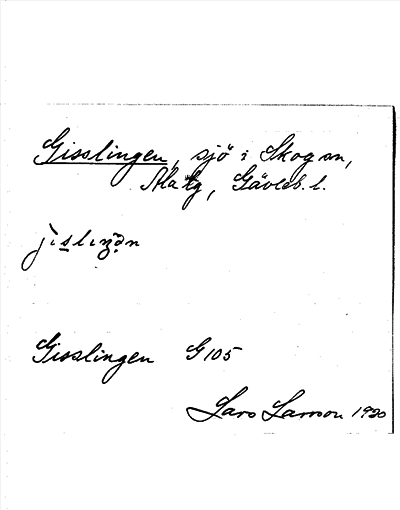 Gisslingen, sjö i Skog sn,
Ala tg, Gävleb. l.
jislıŋən
Gisslingen G 105
Lars Larsson 1920